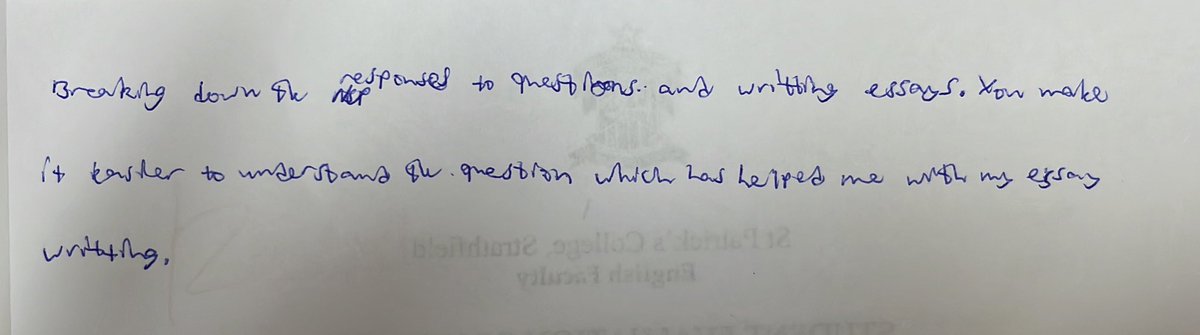 Breaking down the responses to questions.. and writting essays. You make
it easier to understand the question which has helped me with my essay
writting.
St Patrick's College, Strathfield
English Faculty